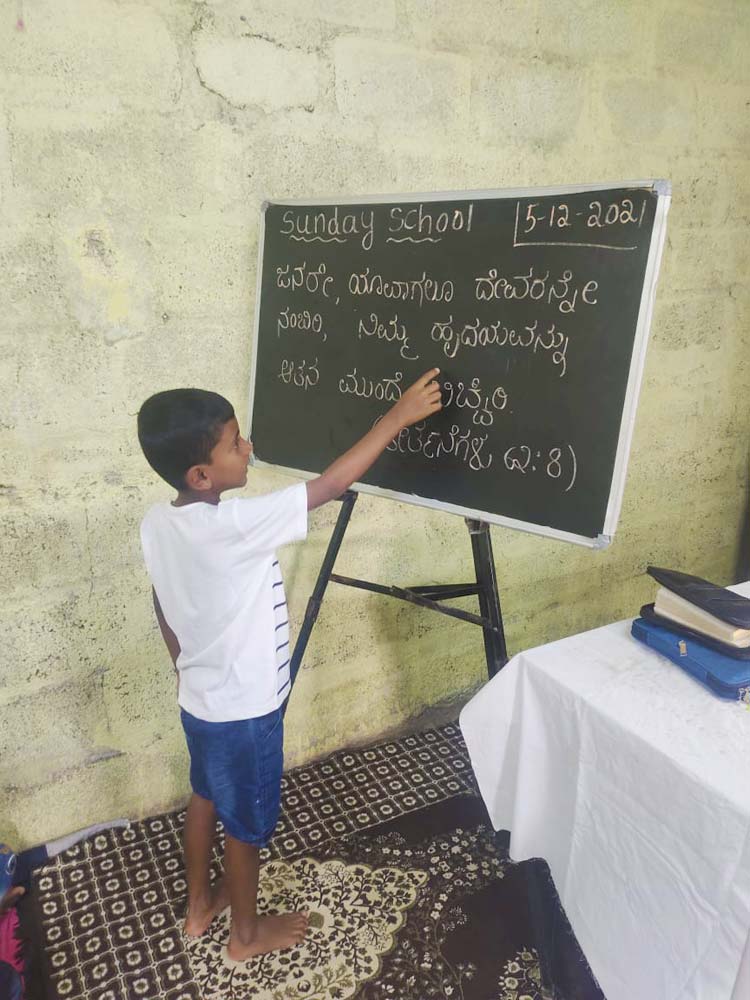 Sunday School 5-12-2021
ಜನರೇ, ಯಾವಾಗಲೂ ದೇವರನ್ನೇ
ನಂಬಿರಿ, ನಿಮ್ಮ ಹೃದಯವನ್ನು
ಆತನ ಮುಂದೆ
(ಕೀರ್ತನೆಗಳು ೬೨: 8)